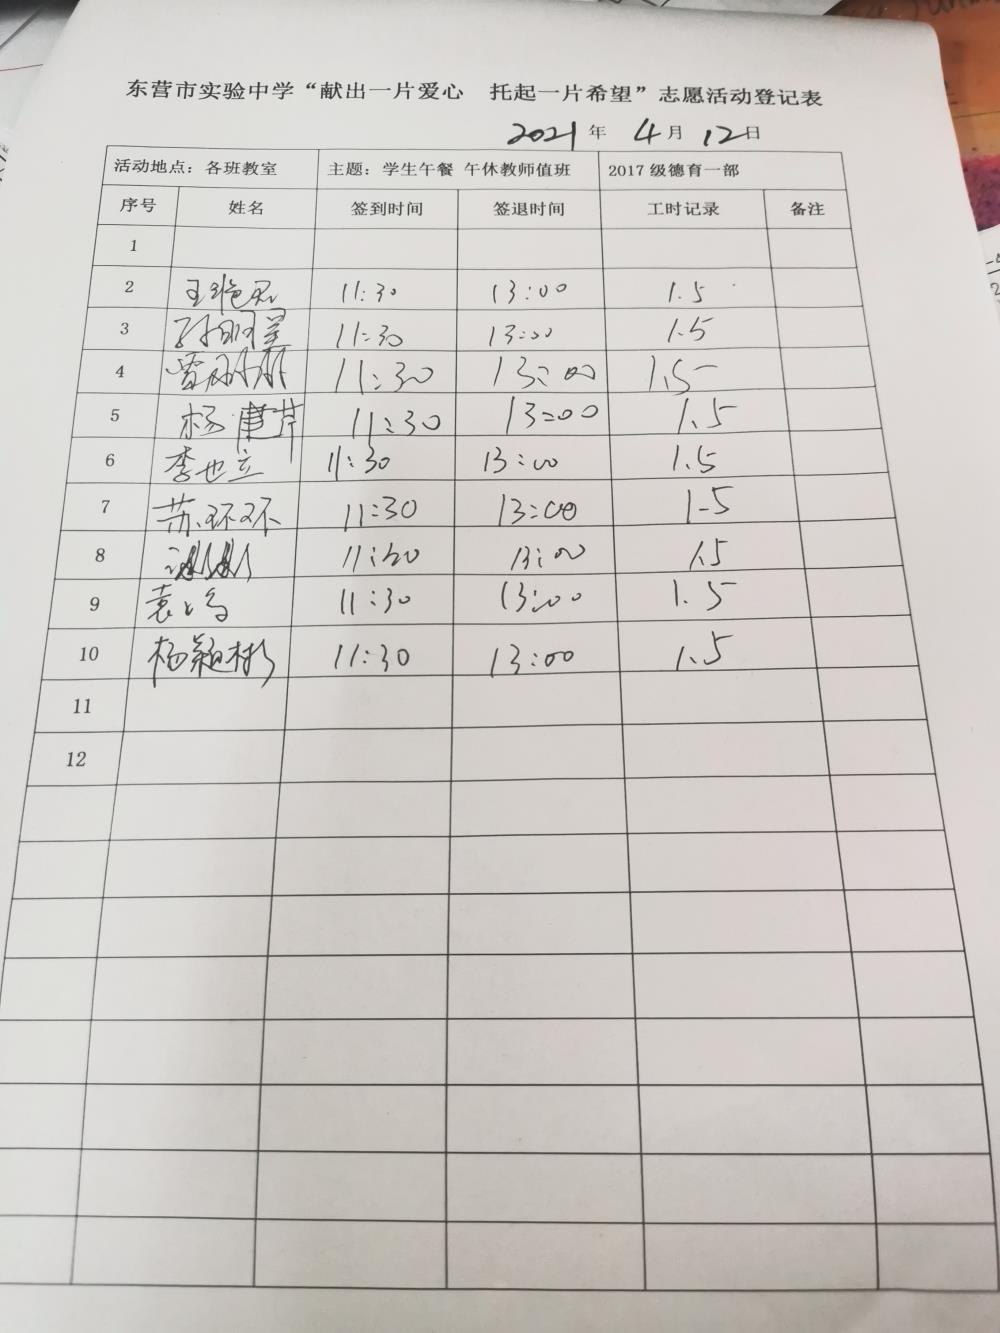 东营市实验中学“献出一片爱心 托起一片希望”志愿活动登记表
2021 年 4 月 12 日
活动地点：各班教室 主题：学生午餐 午休教师值班 2017 级德育一部
序号 姓名 签到时间 签退时间 工时记录 备注
1
2 王艳君 11:30 13:00 1.5
3 11:30 13:00 1.5
4 11:30 13:00 1.5
5 杨 11:30 13:00 1.5
6 李世立 11:30 13:00 1.5
7 苏环环 11:30 13:00 1.5
8 11:30 13:00 1.5
9 11:30 13:00 1.5
10 杨颖彬 11:30 13:00 1.5
11
12